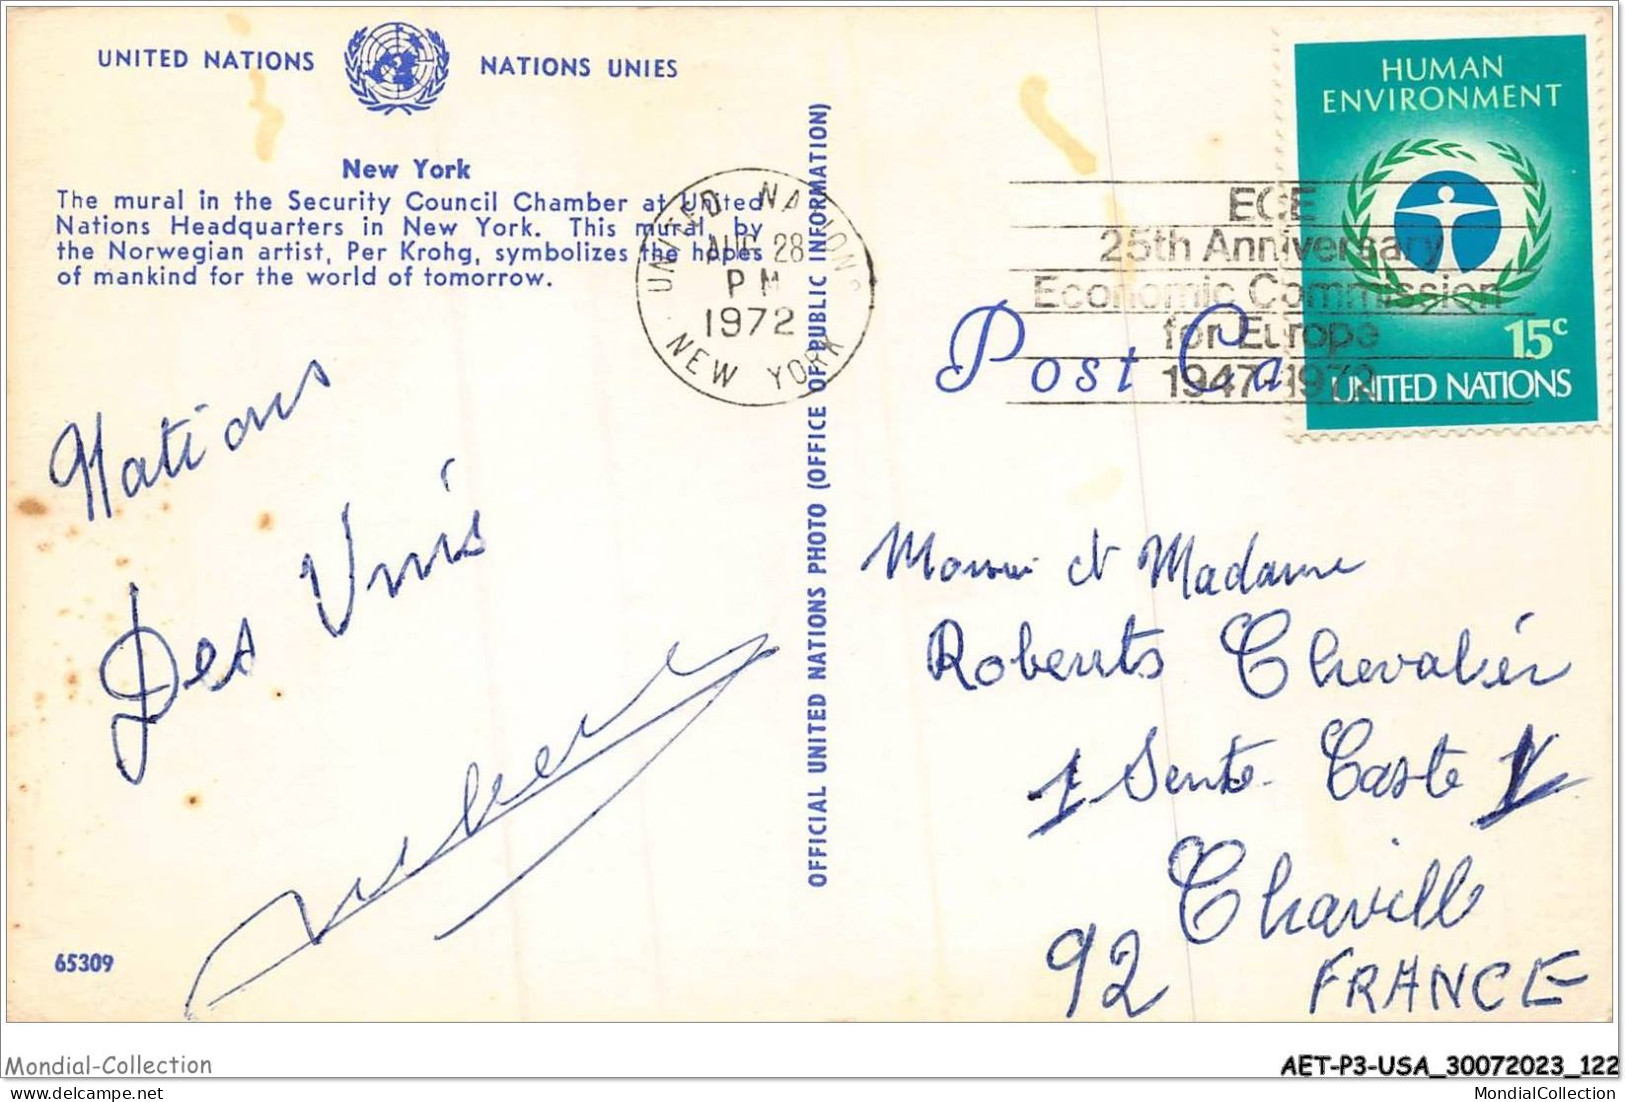 UNITED NATIONS NATIONS UNIES
New York
The mural in the Security Council Chamber at United
Nations Headquarters in New York. This mural, by
the Norwegian artist, Per Krohg, symbolizes the hopes
of mankind for the world of tomorrow.
UNITED NATIONS
AUG 28
PM
1972
NEW YORK
OFFICIAL UNITED NATIONS PHOTO (OFFICE OF PUBLIC INFORMATION)
HUMAN
ENVIRONMENT
15c
UNITED NATIONS
ECE
25th Anniversary
Economic Commission
for Europe
1947-1972
Post Ca
Nations
Des Unis
Monsieur et Madame
Roberts Chevalier
1 Sente Caste
Chaville
92 FRANCE
65309
Mondial-Collection
AET-P3-USA_30072023_122
www.delcampe.net
MondialCollection